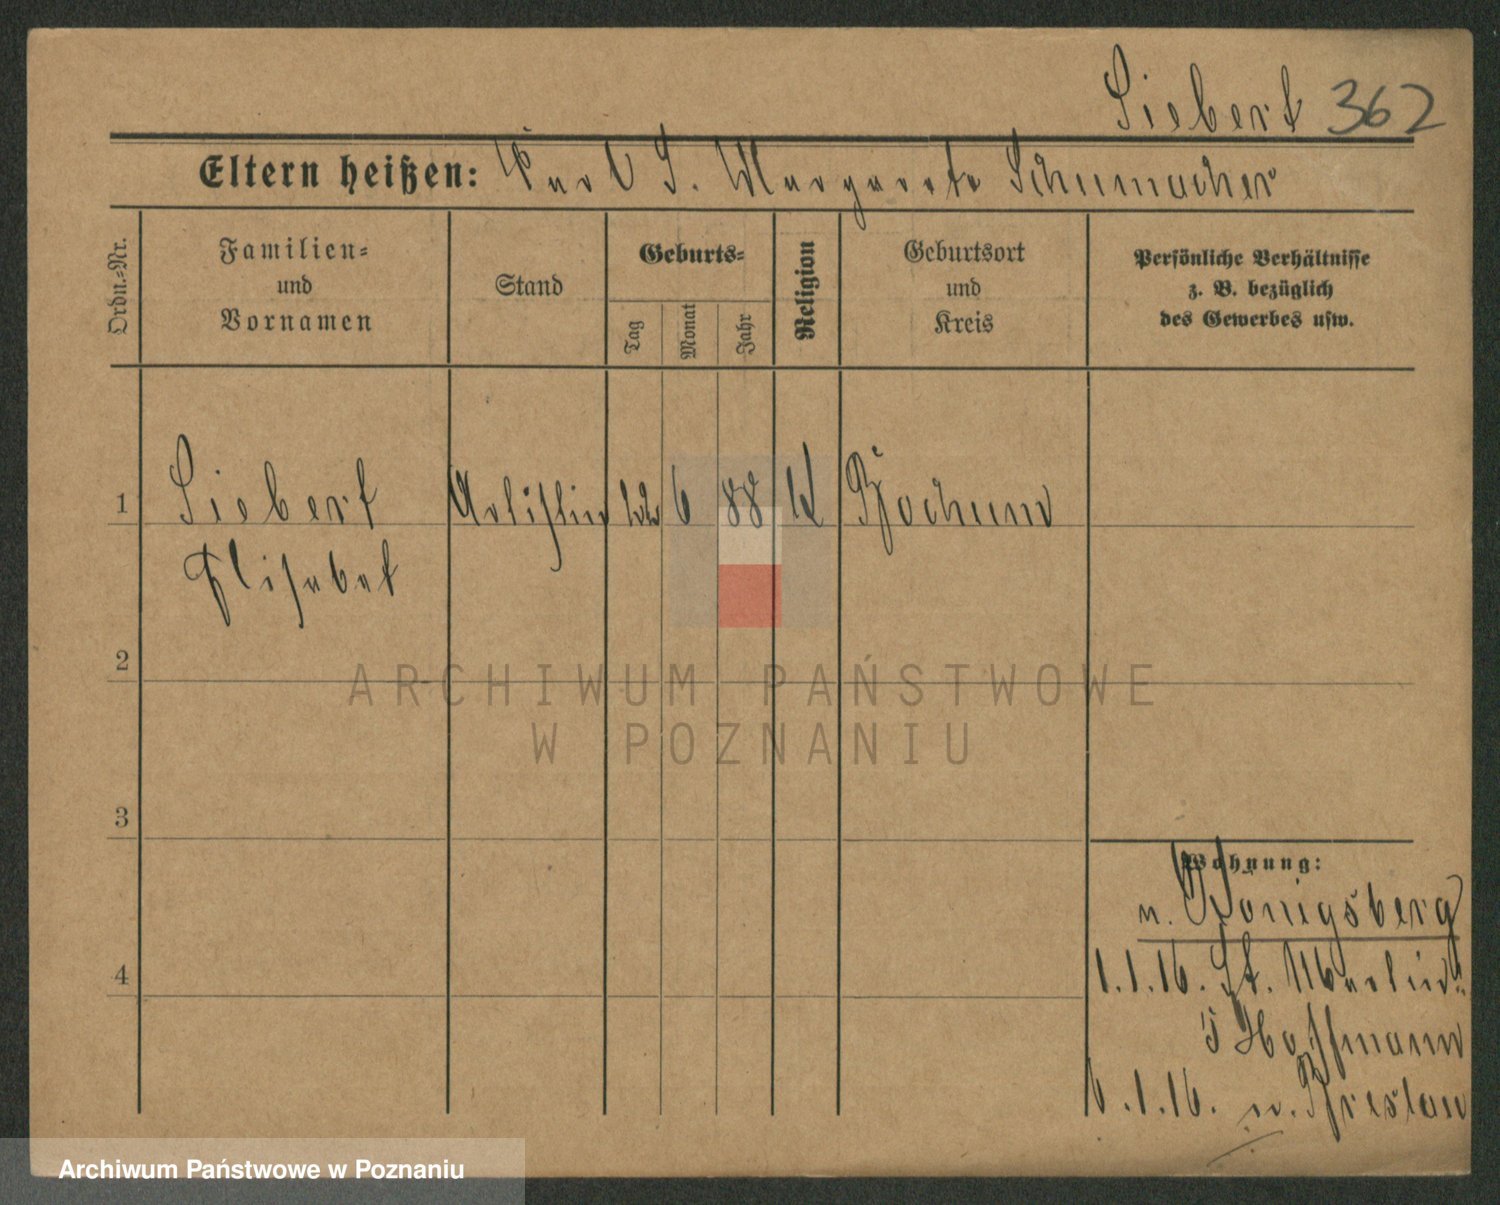 Siebert 362
Eltern heißen: Karl S. Margarete Schumacher
Ordn.-Nr.
Familien-
und
Vornamen
Stand
Geburts-
Tag
Monat
Jahr
Religion
Geburtsort
und
Kreis
Persönliche Verhältnisse
z. B. bezüglich
des Gewerbes usw.
1 Siebert Artistin 22 6 88 Bochum
Elisabet
2
3
4
Wohnung:
n. Königsberg
1.1.16. St. Martinstr.
5 Hoffmann
6.1.16. n. Breslau
ARCHIWUM PAŃSTWOWE
W POZNANIU
Archiwum Państwowe w Poznaniu